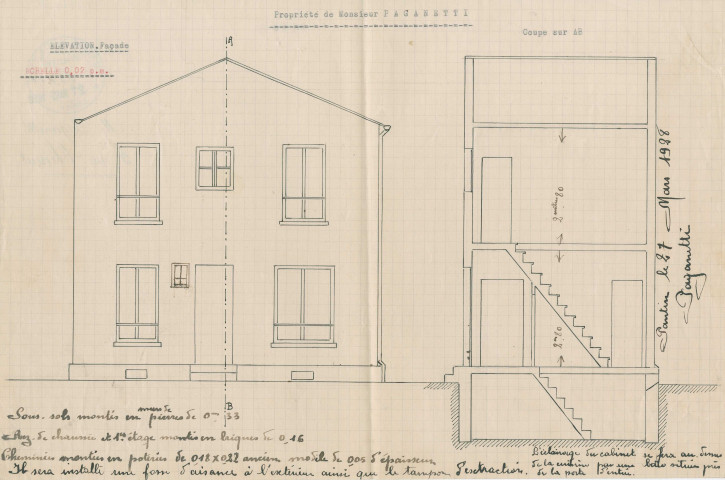 Propriété de Monsieur PAGANETTI
ELEVATION Façade
Coupe sur AB
ECHELLE 0,02 p.m.
A
2 mètres 80
2m80
Pantin le 27 Mars 1928
Paganetti
B
Sous-sols montés en meulière pierres de 0m 33
Rez de chaussée et 1er étage montés en briques de 0,16
Cheminées montées en poteries de 018 x 022 ancien modèle de 005 d'épaisseur
Il sera installé une fosse d'aisance à l'extérieur ainsi que le tampon d'extraction.
L'éclairage du cabinet se fera au-dessus
de la cuisine par une baie située près
de la porte d'entrée.